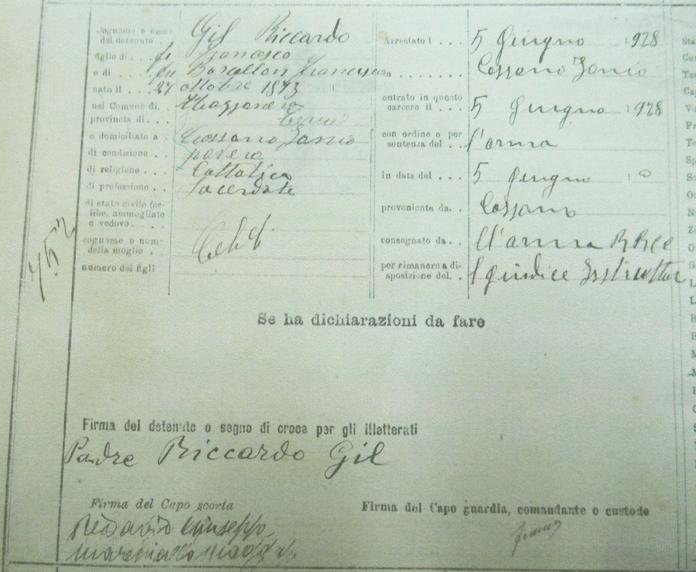 Cognome e nome del detenuto . . Gil Riccardo
figlio di . . fu Francesco
e di . . fu Barcellon Francesca
nato il . . 27 ottobre 1873
nel Comune di.
provincia di .
e domiciliato a . Cossano Jonio
di condizione . . povera
di religione . . . Cattolica
di professione . . Sacerdote
di stato civile (celibe, ammogliato o vedovo. . .
cognome e nome della moglie . . Celib.
numero dei figli
Arrestato i . . 5 Giugno 1928
in Cossano Jonio
entrato in questo carcere il . . 5 Giugno 1928
con ordine o per sentenza del . . l'arma
in data del . . 5 Giugno
proveniente da. . Cossano
consegnato da. . ll'arma RRCC
per rimanere a disposizione del. . l giudice Istruttor
752
Se ha dichiarazioni da fare
Firma del detenuto o segno di croce per gli illetterati
Padre Riccardo Gil
Firma del Capo scorta
Giuseppe
Firma del Capo guardia, comandante o custode